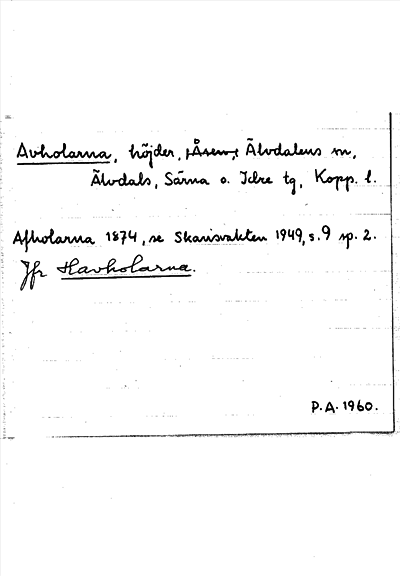 Avholarna, höjder, i Åsen, i Älvdalens sn,
Älvdals, Särna o. Idre tg, Kopp. l.
Afholarna 1874, se Skarisvakten 1949, s. 9 sp. 2.
Jfr Havholarna.
P.A. 1960.